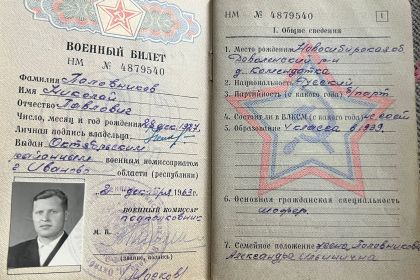 ВОЕННЫЙ БИЛЕТ
НМ № 4879540
Фамилия Половников
Имя Николай
Отчество Павлович
Число, месяц и год рождения 28 дек 1927
Личная подпись владельца
Выдан Октябрьским
районным военным комиссариатом
г Иваново области (республики)
2 декабря 1963 г.
Военный комиссар
подполковник
М. П.
(звание, подпись)
НМ № 4879540
1
I. Общие сведения
1. Место рождения Новосибирская об
Доволенский р-н
д. Комендатка
2. Национальность Русский
3. Партийность (с какого года) б/парт
4. Состоит ли в ВЛКСМ (с какого года) не сост
5. Образование 4 класса в 1939
6. Основная гражданская специальность
шофер
7. Семейное положение жена Половникова
Александра Ильинична